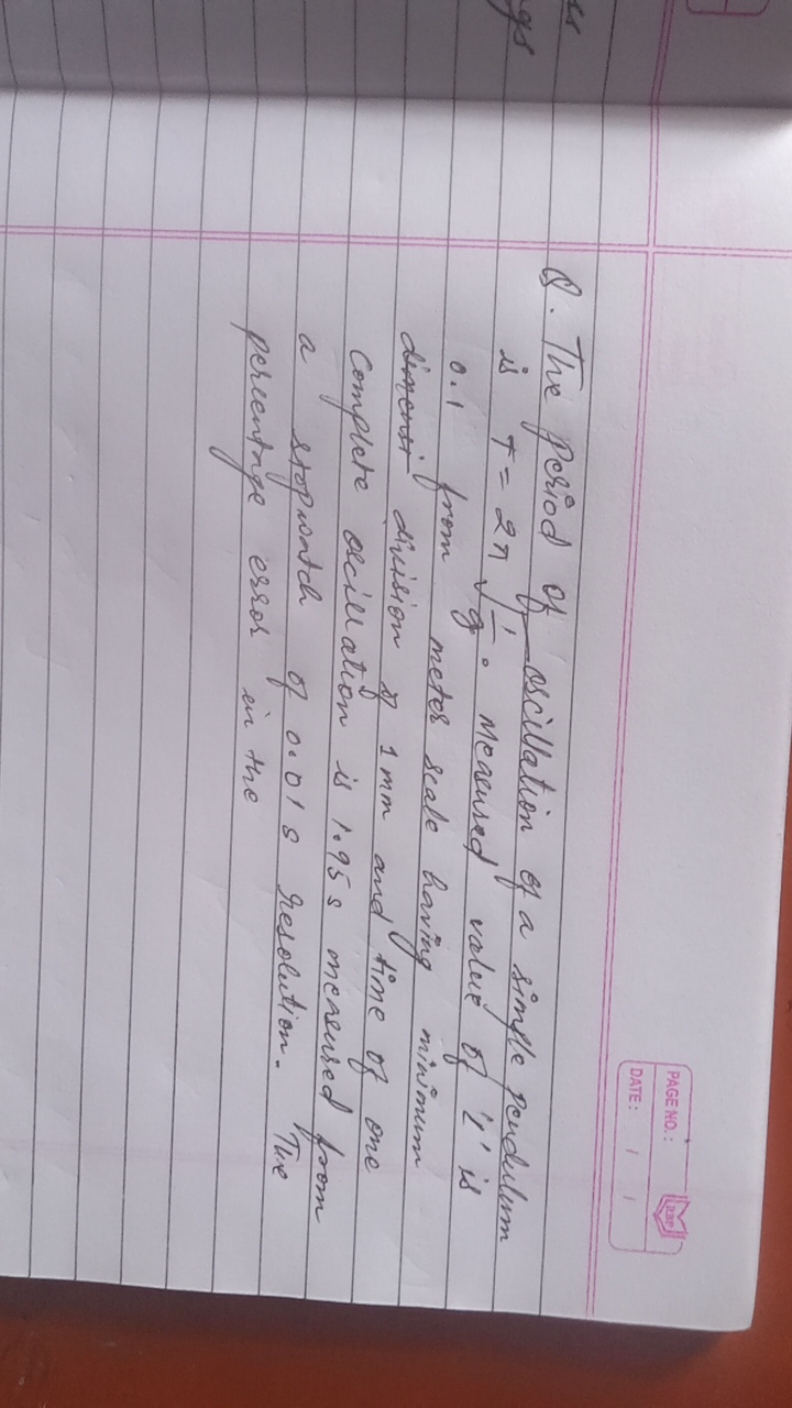 us
gs
PAGE NO.:
DATE: / /
Q. The period of oscillation of a simple pendulum
is T = 2π √L/g. Measured value of 'L' is
0.1 from meter scale having minimum
dimensi division of 1 mm and time of one
complete oscillation is 1.95 s measured from
a stopwatch of 0.01 s resolution. The
percentage error in the